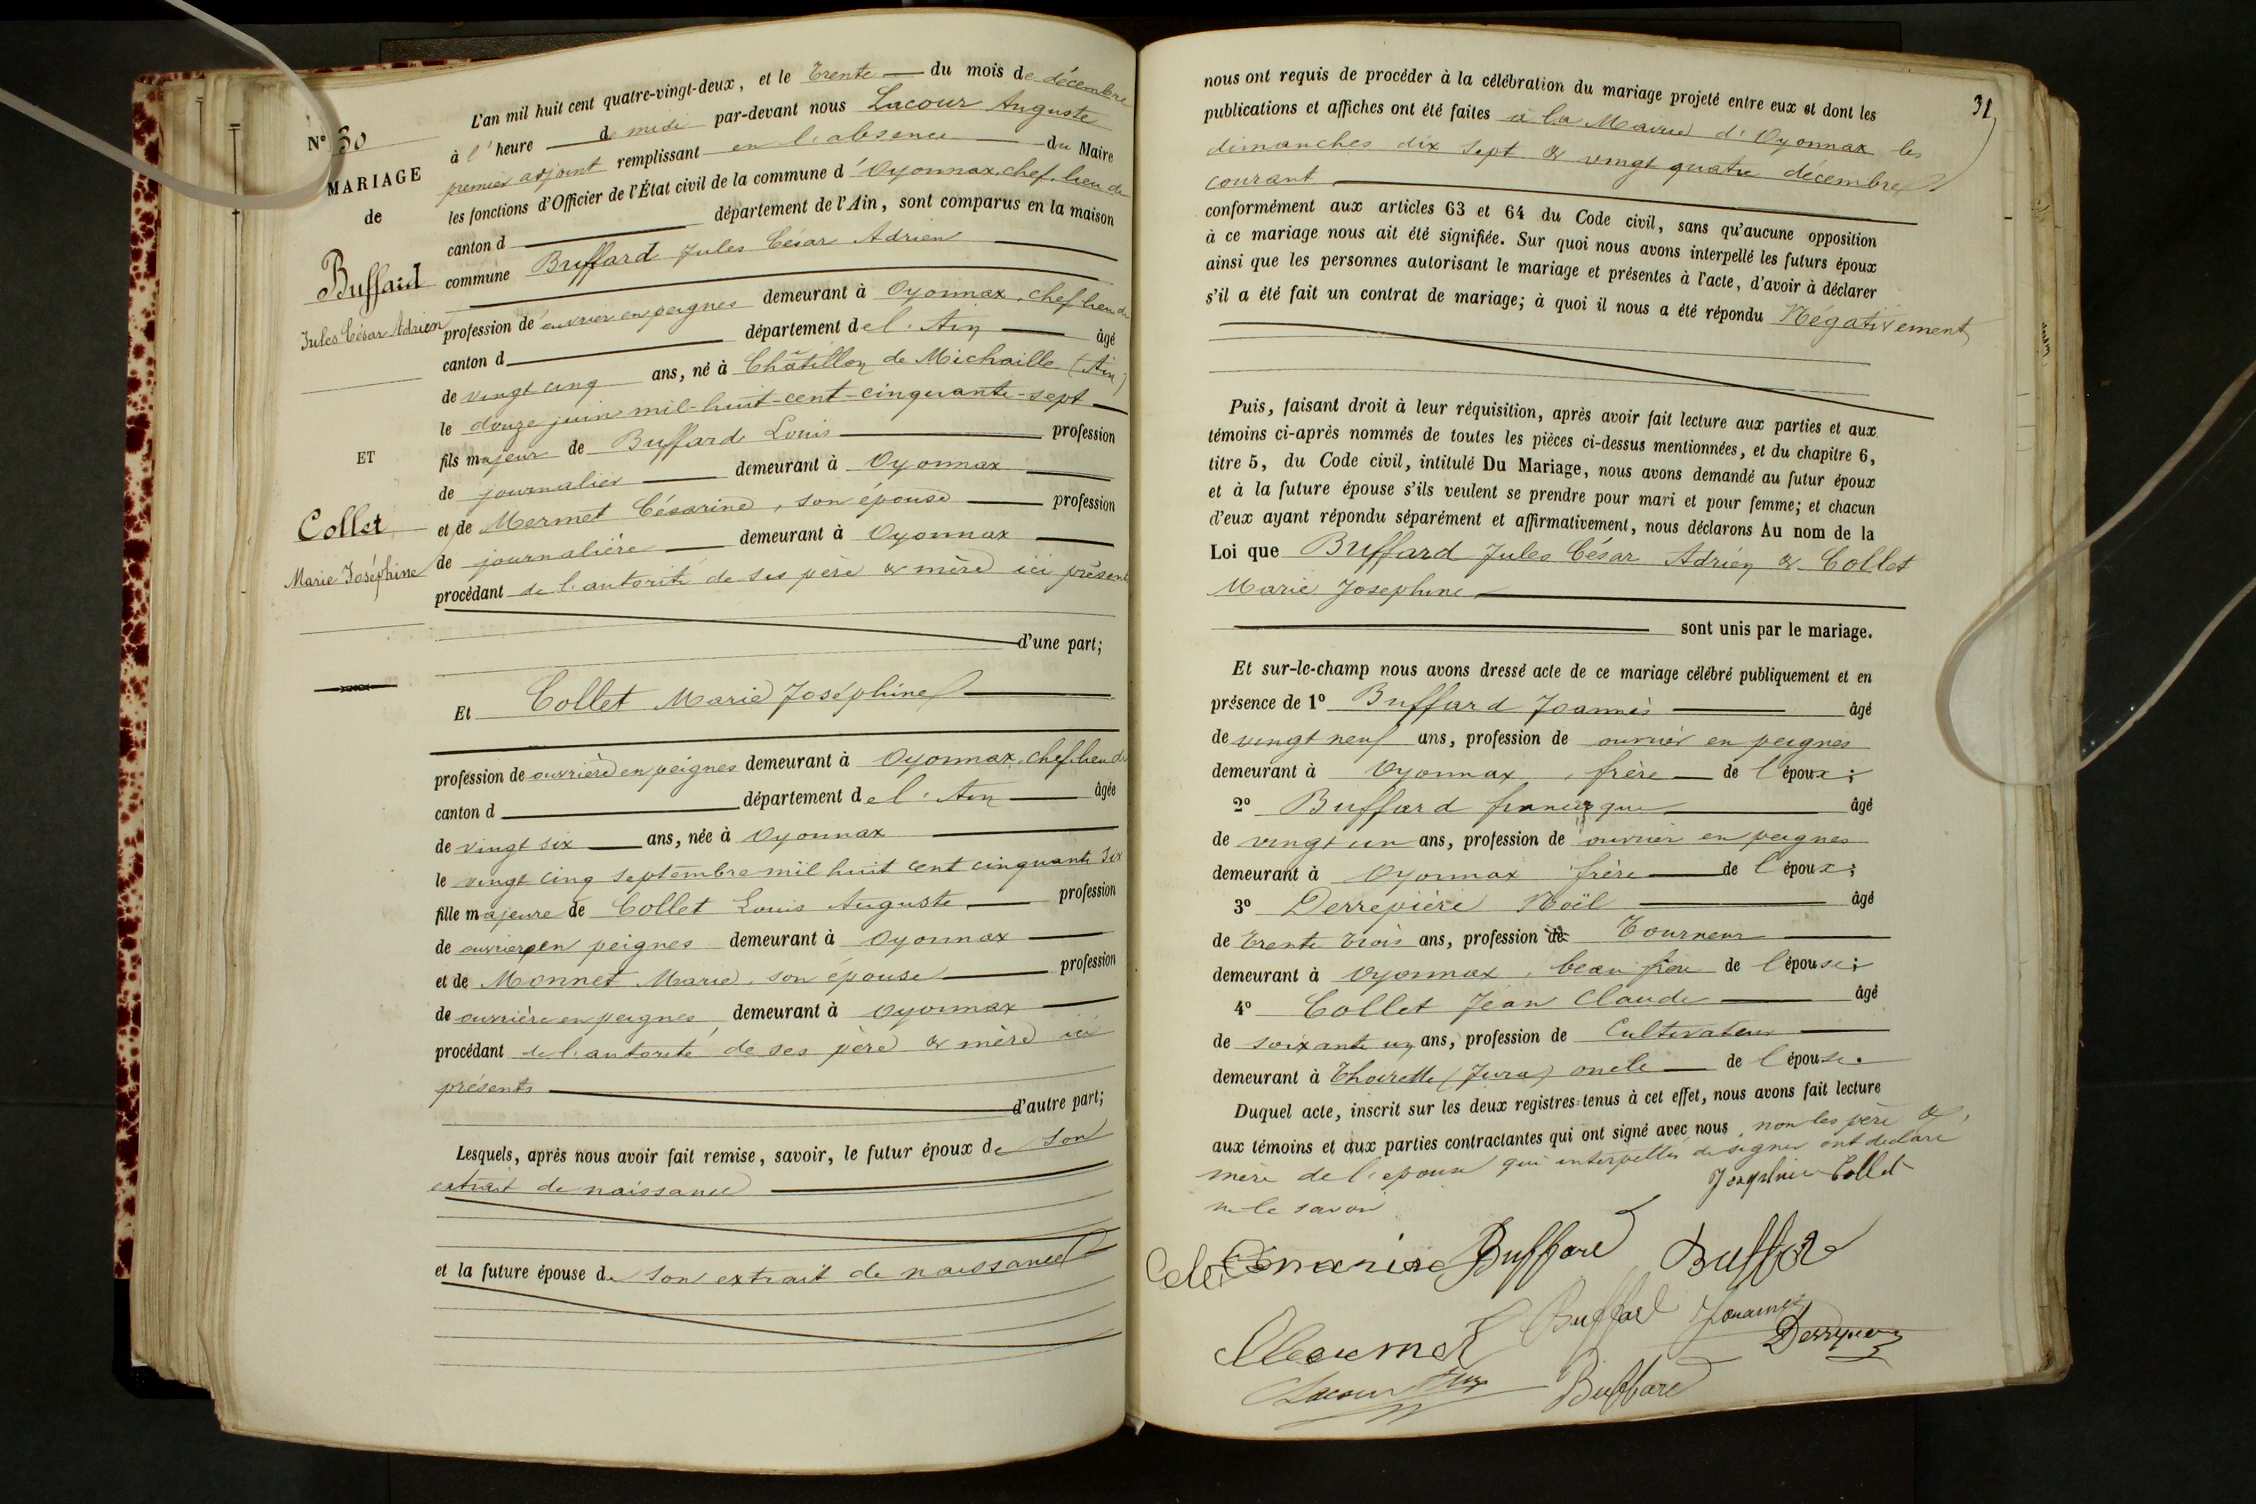 N° 30
MARIAGE
de
Buffard
Jules César Adrien
ET
Collet
Marie Joséphine
L'an mil huit cent quatre-vingt-deux, et le Trente du mois de décembre
à l'heure d midi par-devant nous Lacour Auguste
premier adjoint remplissant en l'absence du Maire
les fonctions d'Officier de l'État civil de la commune d'Oyonnax, chef-lieu de
canton d département de l'Ain, sont comparus en la maison
commune Buffard Jules César Adrien
profession de ouvrier en peignes demeurant à Oyonnax, chef lieu de
canton d département de l'Ain âgé
de vingt cinq ans, né à Châtillon de Michaille (Ain)
le douze juin mil-huit-cent-cinquante-sept
fils majeur de Buffard Louis profession
de journalier demeurant à Oyonnax
et de Mermet Césarine, son épouse profession
de journalière demeurant à Oyonnax
procédant de l'autorité de ses père & mère ici présents
d'une part;
Et Collet Marie Joséphine
profession de ouvrière en peignes demeurant à Oyonnax, chef-lieu de
canton d département de l'Ain âgée
de vingt six ans, née à Oyonnax
le vingt cinq septembre mil huit cent cinquante six
fille majeure de Collet Louis Auguste profession
de ouvrier en peignes demeurant à Oyonnax
et de Monnet Marie, son épouse profession
de ouvrière en peignes demeurant à Oyonnax
procédant de l'autorité de ses père & mère ici
présents
d'autre part;
Lesquels, après nous avoir fait remise, savoir, le futur époux de son
extrait de naissance
et la future épouse de son extrait de naissance
31
nous ont requis de procéder à la célébration du mariage projeté entre eux et dont les
publications et affiches ont été faites à la Mairie d'Oyonnax les
dimanches dix sept & vingt quatre décembre
courant
conformément aux articles 63 et 64 du Code civil, sans qu'aucune opposition
à ce mariage nous ait été signifiée. Sur quoi nous avons interpellé les futurs époux
ainsi que les personnes autorisant le mariage et présentes à l'acte, d'avoir à déclarer
s'il a été fait un contrat de mariage; à quoi il nous a été répondu Négativement
Puis, faisant droit à leur réquisition, après avoir fait lecture aux parties et aux
témoins ci-après nommés de toutes les pièces ci-dessus mentionnées, et du chapitre 6,
titre 5, du Code civil, intitulé Du Mariage, nous avons demandé au futur époux
et à la future épouse s'ils veulent se prendre pour mari et pour femme; et chacun
d'eux ayant répondu séparément et affirmativement, nous déclarons Au nom de la
Loi que Buffard Jules César Adrien & Collet
Marie Josephine
sont unis par le mariage.
Et sur-le-champ nous avons dressé acte de ce mariage célébré publiquement et en
présence de 1° Buffard Joannès âgé
de vingt neuf ans, profession de ouvrier en peignes
demeurant à Oyonnax, frère de l'époux;
2° Buffard francisque âgé
de vingt un ans, profession de ouvrier en peignes
demeurant à Oyonnax frère de l'époux;
3° Derrepière Noël âgé
de trente trois ans, profession de Tourneur
demeurant à Oyonnax, beau frère de l'épouse;
4° Collet Jean Claude âgé
de soixante un ans, profession de Cultivateur
demeurant à Thoirette (Jura) oncle de l'épouse.
Duquel acte, inscrit sur les deux registres tenus à cet effet, nous avons fait lecture
aux témoins et aux parties contractantes qui ont signé avec nous, non les père &
mère de l'épouse qui interpellés de signer ont déclaré
ne le savoir
Josephine Collet
Buffard
Buffard
Joannes
Lacour
Buffard